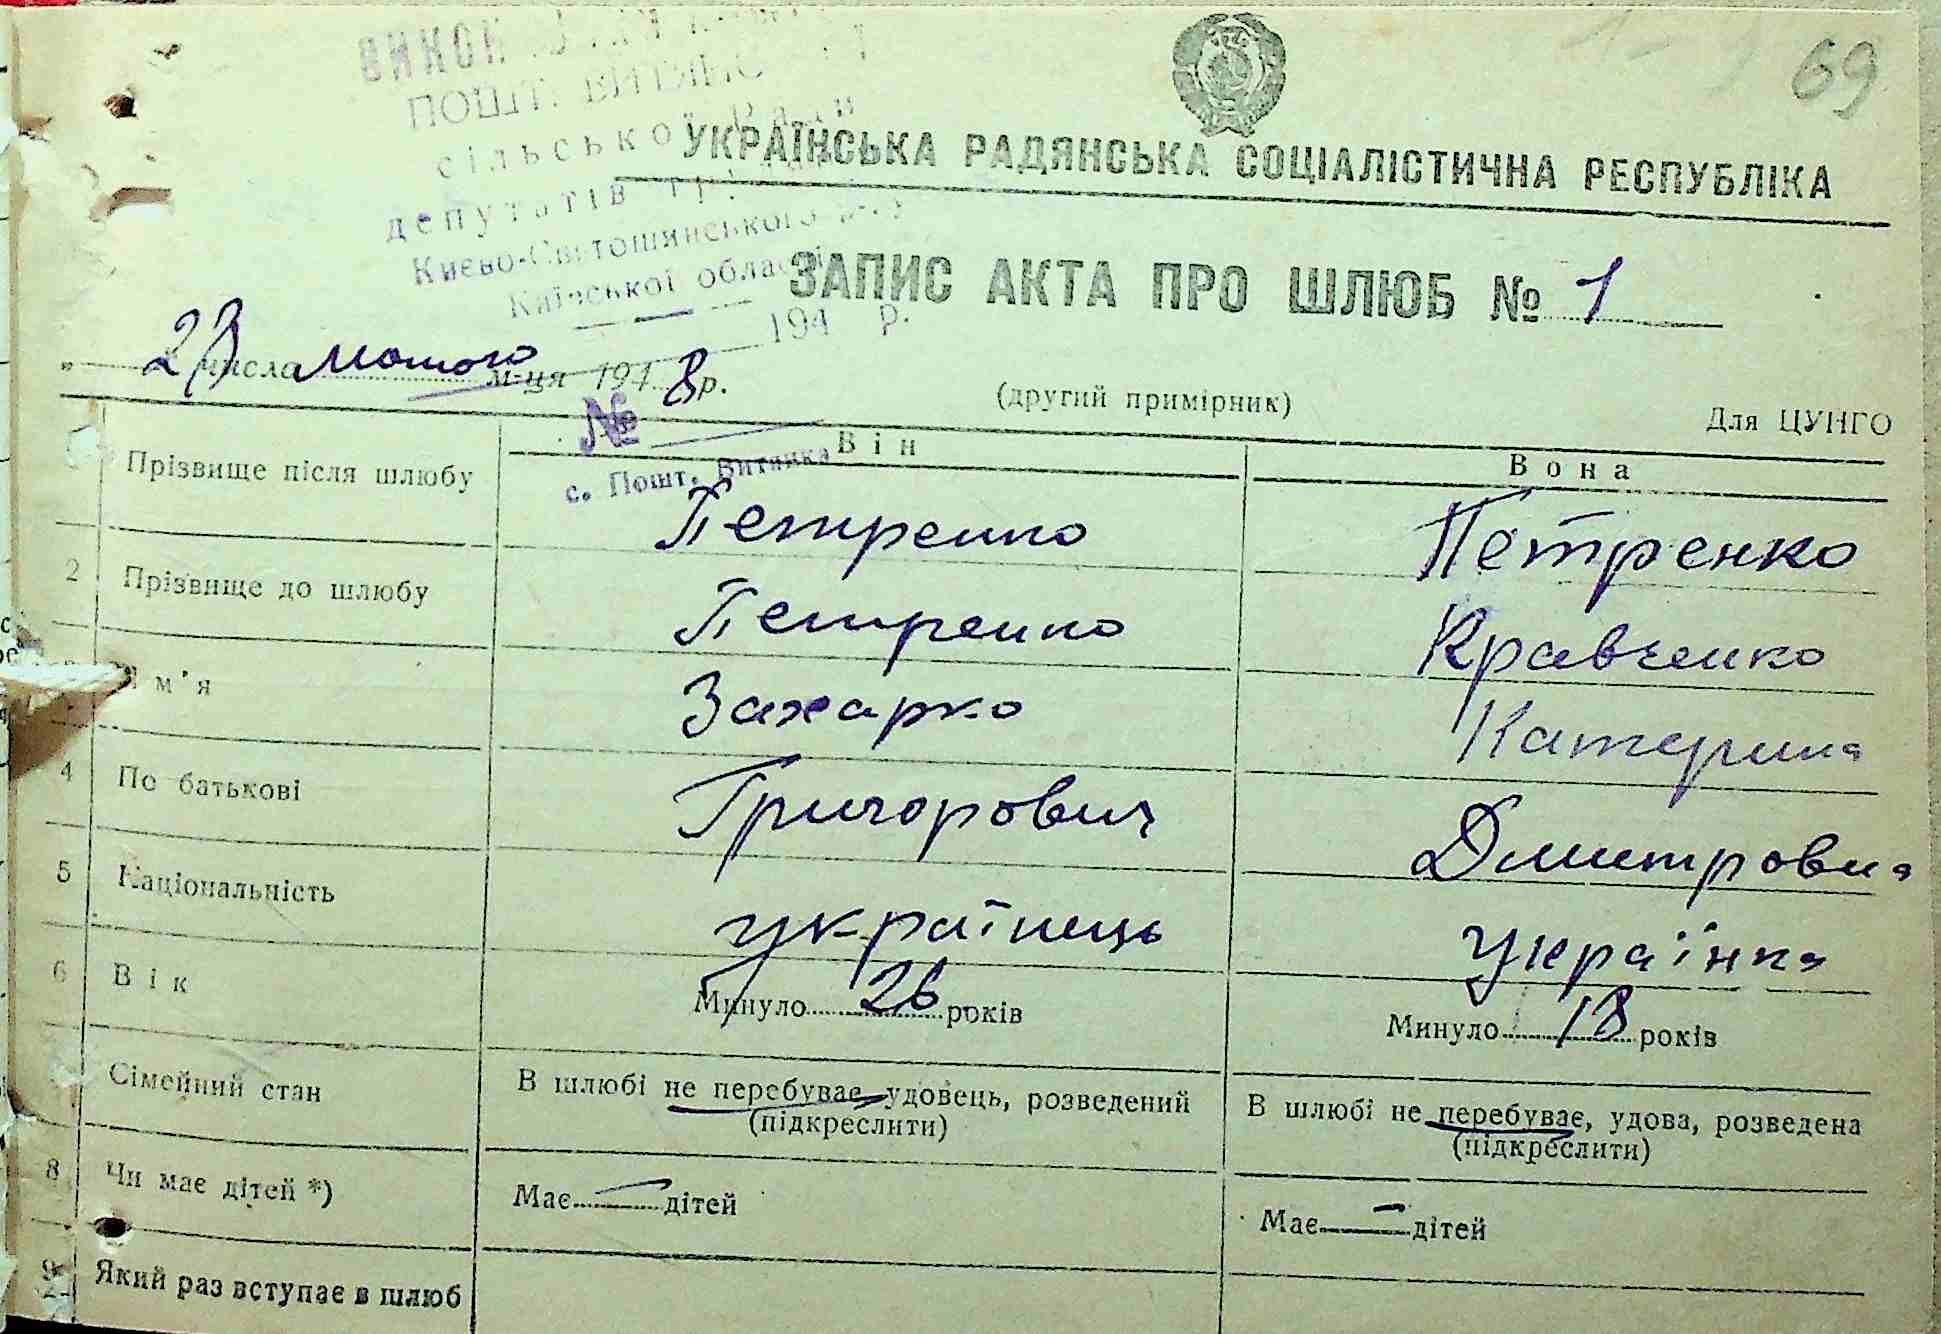 69
сільської Ради
депутатів
Києво-Святошинського
Київської області
194 р.
УКРАЇНСЬКА РАДЯНСЬКА СОЦІАЛІСТИЧНА РЕСПУБЛІКА
ЗАПИС АКТА ПРО ШЛЮБ № 1
числа лютого м-ця 1948 р.
(другий примірник)
Для ЦУНГО
№
с. Пошт. Витянка
Він Вона
Прізвище після шлюбу Петренко Петренко
2 Прізвище до шлюбу Петренко Кравченко
м'я Захарко Катерина
4 По батькові Григорович Дмитровна
5 Національність українець українка
6 Вік Минуло 26 років Минуло 18 років
Сімейний стан В шлюбі не перебуває, удовець, розведений В шлюбі не перебуває, удова, розведена
(підкреслити) (підкреслити)
8 Чи має дітей *) Має — дітей Має — дітей
9 Який раз вступає в шлюб